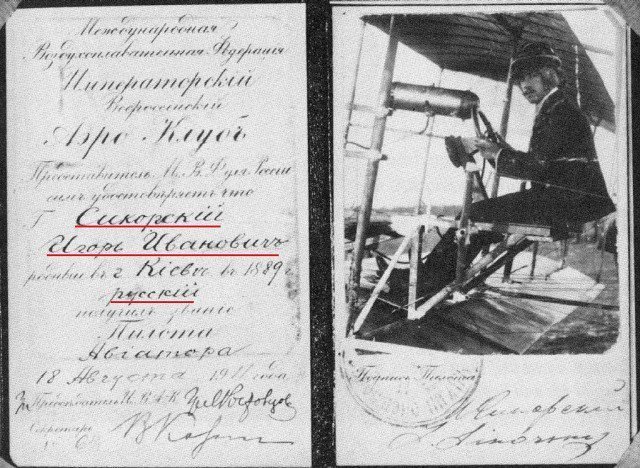 Международная
Воздухоплавательная Федерация
Императорскій
Всероссійскій
Аэро Клубъ
Представитель М. В. Ф для Россіи
симъ удостовѣряетъ что
Г Сикорскій
Игорь Ивановичъ
родивш въ г Кіевѣ въ 1889 г.
русскій
получилъ званіе
Пилота
Авіатора
18 Августа 1911 года
Предсѣдатель И. В. А. К.
Секретарь
Подпись Пилота
И Сикорскій
Sikorsky